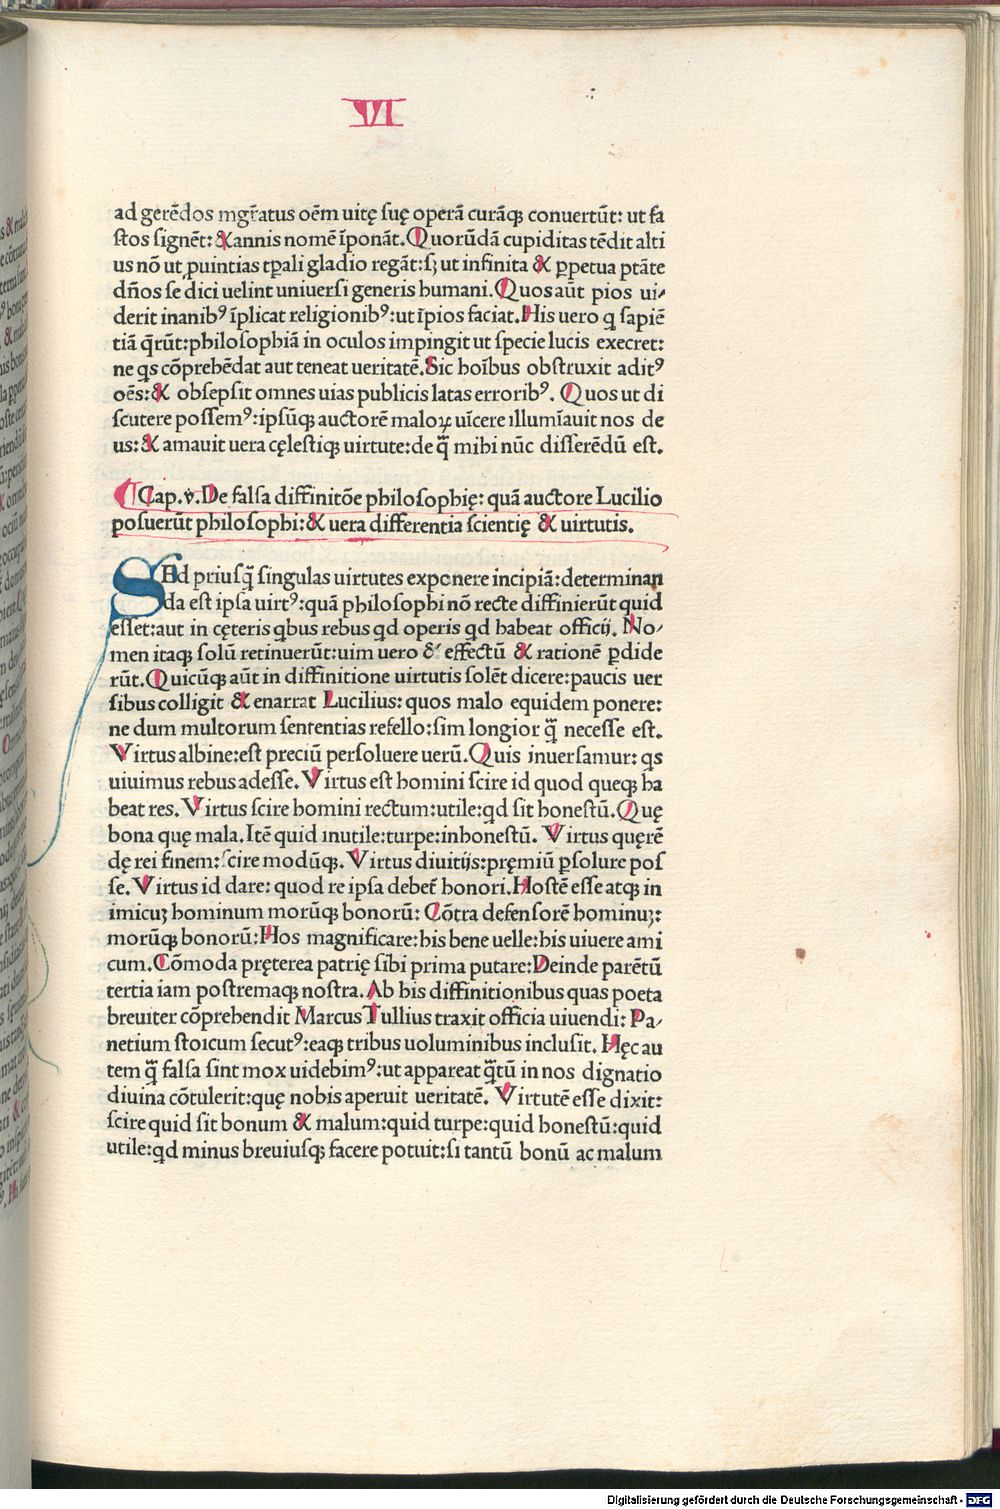 VI
ad gerēdos mgr̄atus oēm uitę suę operā curāq; conuertūt: ut fa
stos signēt: & annis nomē īponāt. Quorūdā cupiditas tēdit alti
us nō ut ꝓuintias tꝑali gladio regāt: sꝫ ut infinita & ꝑpetua ptāte
dn̄os se dici uelint uniuersi generis humani. Quos aūt pios ui⸗
derit inanibꝰ īplicat religionibꝰ: ut īpios faciat. His uero q sapiē
tiā q̄rūt: philosophiā in oculos impingit ut specie lucis execret:
ne qs cōprehēdat aut teneat ueritatē. Sic hoībus obstruxit aditꝰ
oēs: & obsepsit omnes uias publicis latas erroribꝰ. Quos ut di
scutere possemꝰ: ipsūq; auctorē maloꝝ uīcere illumīauit nos de
us: & amauit uera cęlestiq; uirtute: de q̄ mihi nūc disserēdū est.
Cap. v. De falsa diffinitōe philosophię: quā auctore Lucilio
posuerūt philosophi: & uera differentia scientię & uirtutis.
SEd priusq̄ singulas uirtutes exponere incipiā: determinan
da est ipsa uirtꝰ: quā philosophi nō recte diffinierūt quid
esset: aut in cęteris qbus rebus qd operis qd habeat officij. No⸗
men itaq; solū retinuerūt: uim uero & effectū & rationē ꝑdide
rūt. Quicūq; aūt in diffinitione uirtutis solēt dicere: paucis uer
sibus colligit & enarrat Lucilius: quos malo equidem ponere:
ne dum multorum sententias refello: sim longior q̄ necesse est.
Virtus albine: est preciū persoluere uerū. Quis inuersamur: qs
uiuimus rebus adesse. Virtus est homini scire id quod queq; ha
beat res. Virtus scire homini rectum: utile: qd sit honestū. Quę
bona quę mala. Itē quid inutile: turpe: inhonestū. Virtus quęrē
dę rei finem: scire modūq;. Virtus diuitijs: pręmiū ꝑsolure pos
se. Virtus id dare: quod re ipsa debet̄ honori. Hostē esse atq; in
imicuꝫ hominum morūq; bonorū: Cōtra defensorē hominuꝫ:
morūq; bonorū: Hos magnificare: his bene uelle: his uiuere ami
cum. Cōmoda pręterea patrię sibi prima putare: Deinde parētū
tertia iam postremaq; nostra. Ab his diffinitionibus quas poeta
breuiter cōprehendit Marcus Tullius traxit officia uiuendi: Pa⸗
netium stoicum secutꝰ: eaq; tribus uoluminibus inclusit. Hęc au
tem q̄ falsa sint mox uidebimꝰ: ut appareat q̄tū in nos dignatio
diuina cōtulerit: quę nobis aperuit ueritatē. Virtutē esse dixit:
scire quid sit bonum & malum: quid turpe: quid honestū: quid
utile: qd minus breuiusq; facere potuit: si tantū bonū ac malum
Digitalisierung gefördert durch die Deutsche Forschungsgemeinschaft - DFG